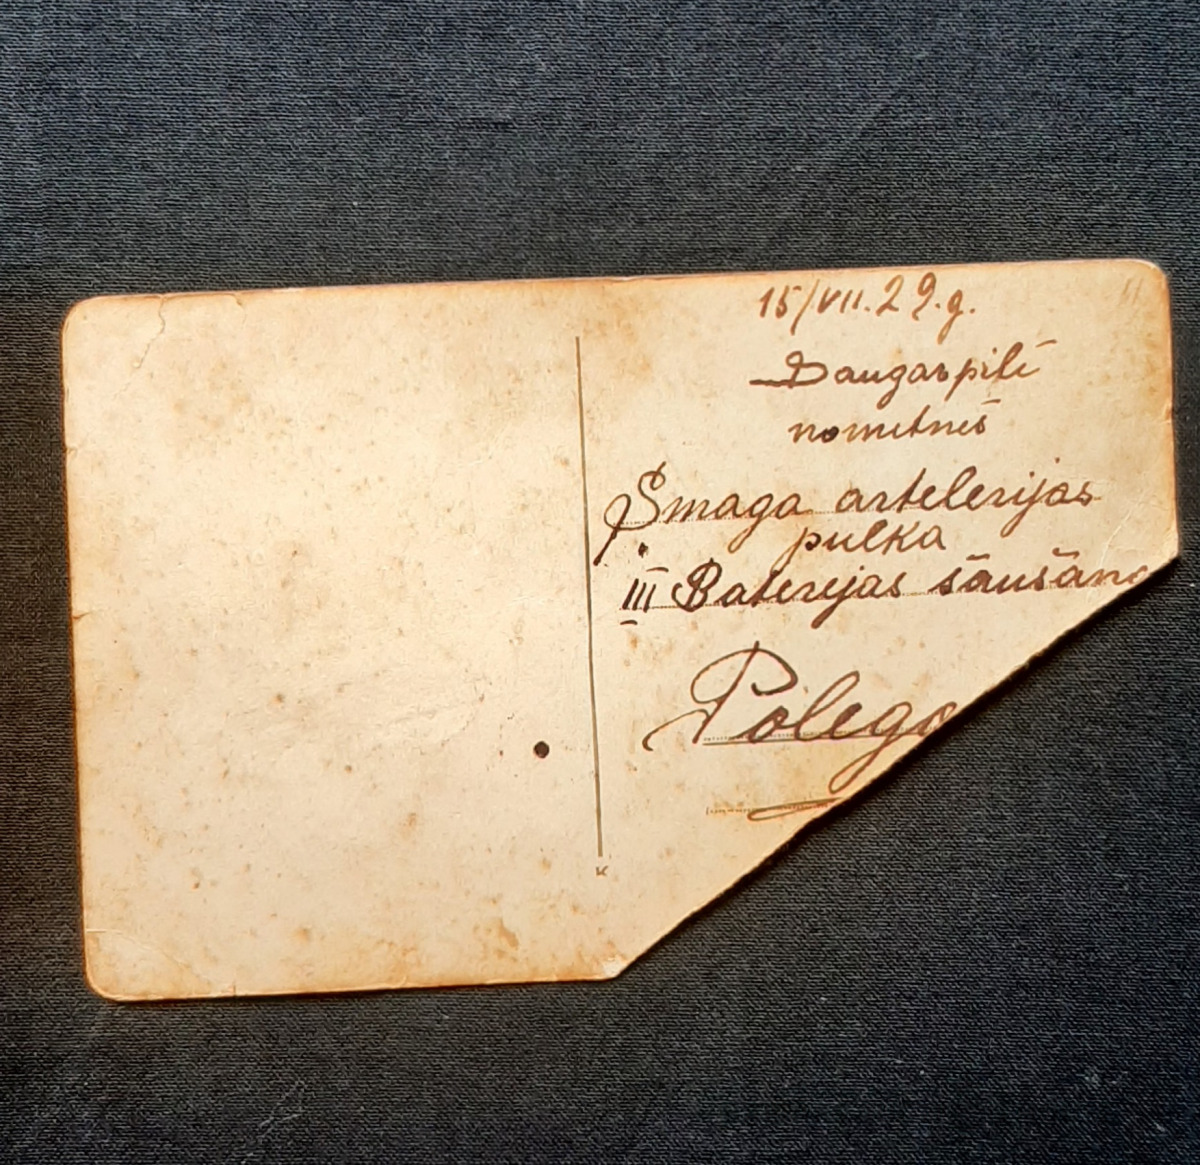 15/VII.29.g.
Daugavpilī
nometnēs
Smaga artelerijas
pulka
III Baterejas šaušana
Polego
K